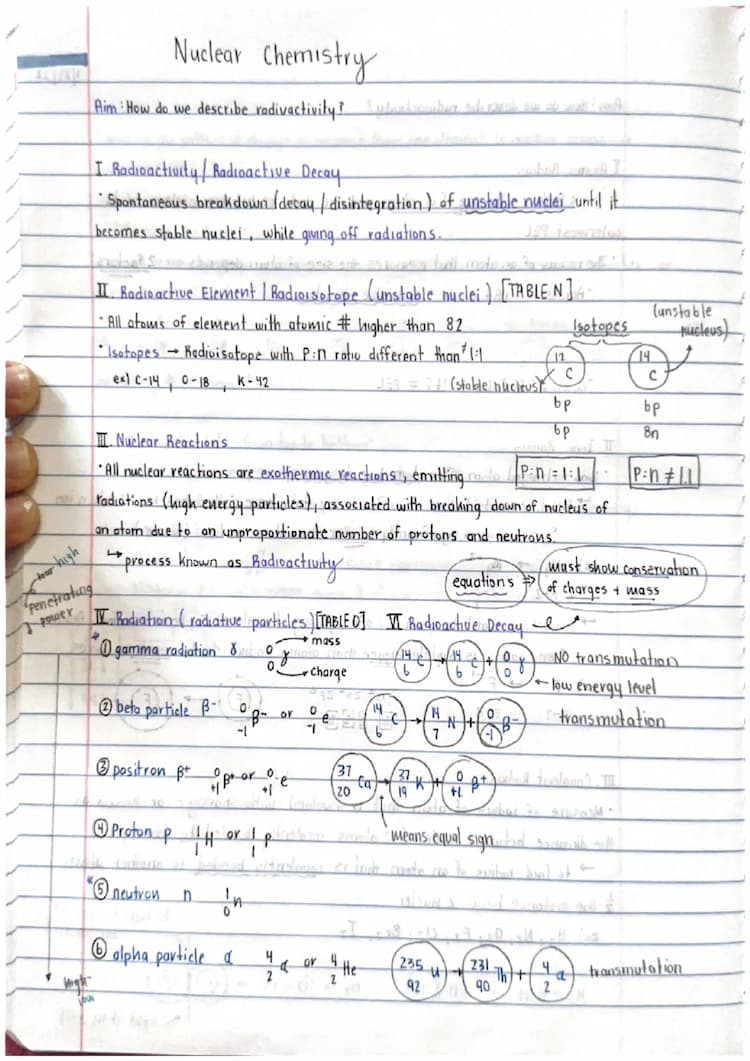 Nuclear Chemistry
Aim: How do we describe radivactivity?
I. Radioactivity / Radioactive Decay
· Spontaneous breakdown (decay / disintegration) of unstable nuclei until it
becomes stable nuclei, while giving off radiations.
II. Radioactive Element / Radioisotope (unstable nuclei) [TABLE N]
· All atoms of element with atomic # higher than 82
· Isotopes → Radioisotope with P:n ratio different than 1:1
ex) C-14, O-18, K-42
Isotopes
(unstable nucleus)
12 C
14 C
(stable nucleus)
6p
6p
6p
8n
P:n = 1:1
P:n ≠ 1:1
III. Nuclear Reactions
· All nuclear reactions are exothermic reactions, emitting
radiations (high energy particles), associated with breaking down of nucleus of
an atom due to an unproportionate number of protons and neutrons.
↳ process known as Radioactivity
equations ⇒ must show conservation
of charges + mass
high
penetrating
power
IV. Radiation (radiative particles) [TABLE O] VI Radioactive Decay
① gamma radiation γ 0 0 γ → mass → charge
14 6 C → 14 6 C + 0 0 γ NO transmutation
← low energy level
② beta particle β- 0 -1 β- or 0 -1 e 14 6 C → 14 7 N + 0 -1 β- transmutation
③ positron β+ 0 +1 β+ or 0 +1 e 37 20 Ca → 37 19 K + 0 +1 β+
means equal sign
④ Proton p 1 1 H or 1 1 P
⑤ neutron n 1 0 n
⑥ alpha particle α 4 2 α or 4 2 He 235 92 U → 231 90 Th + 4 2 α transmutation
low